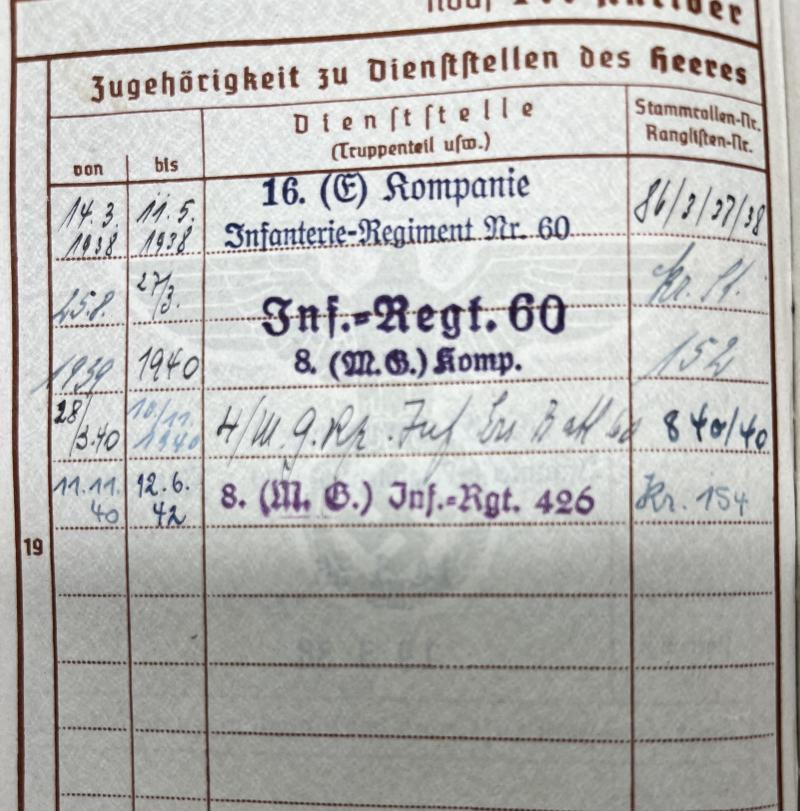 Zugehörigkeit zu Dienststellen des Heeres
von
bis
Dienststelle
(Truppenteil usw.)
Stammrollen-Nr.
Ranglisten-Nr.
14. 3. 1938
11. 5. 1938
16. (E) Kompanie
Infanterie-Regiment Nr. 60
86/3/37/38
25.8. 1939
27/3. 1940
Inf.-Regt. 60
8. (M.G.) Komp.
Kr. St. 152
28/3.40
10/11. 1940
4/M.G.Kp. Inf Ers Batl 60
840/40
11.11. 40
12.6. 42
8. (M. G.) Inf.-Rgt. 426
Kr. 154
19